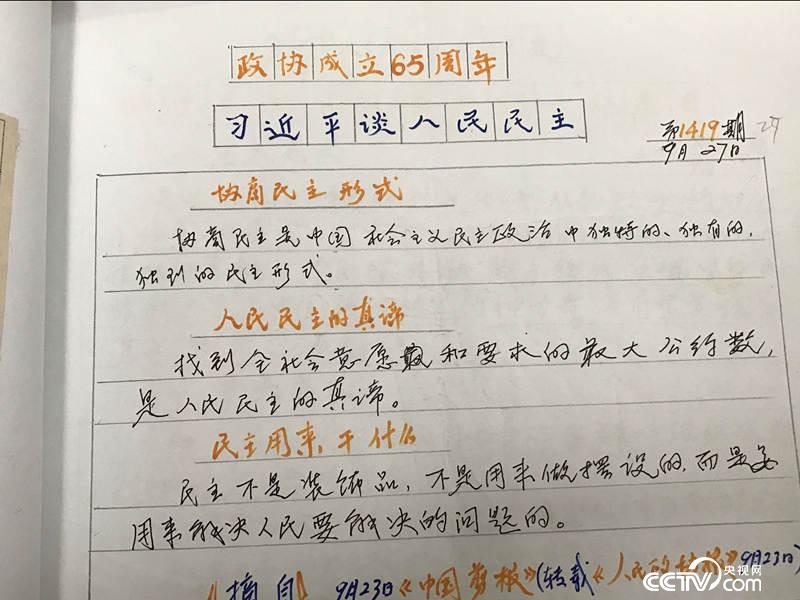 政协成立65周年
习近平谈人民民主
第1419期
9月27日
27
协商民主形式
协商民主是中国社会主义民主政治中独特的、独有的、
独到的民主形式。
人民民主的真谛
找到全社会意愿和要求的最大公约数，
是人民民主的真谛。
民主用来干什么
民主不是装饰品，不是用来做摆设的，而是要
用来解决人民要解决的问题的。
摘自 9月23日《中国剪报》(转载《人民政协报》9月23日)
CCTV.com 央视网